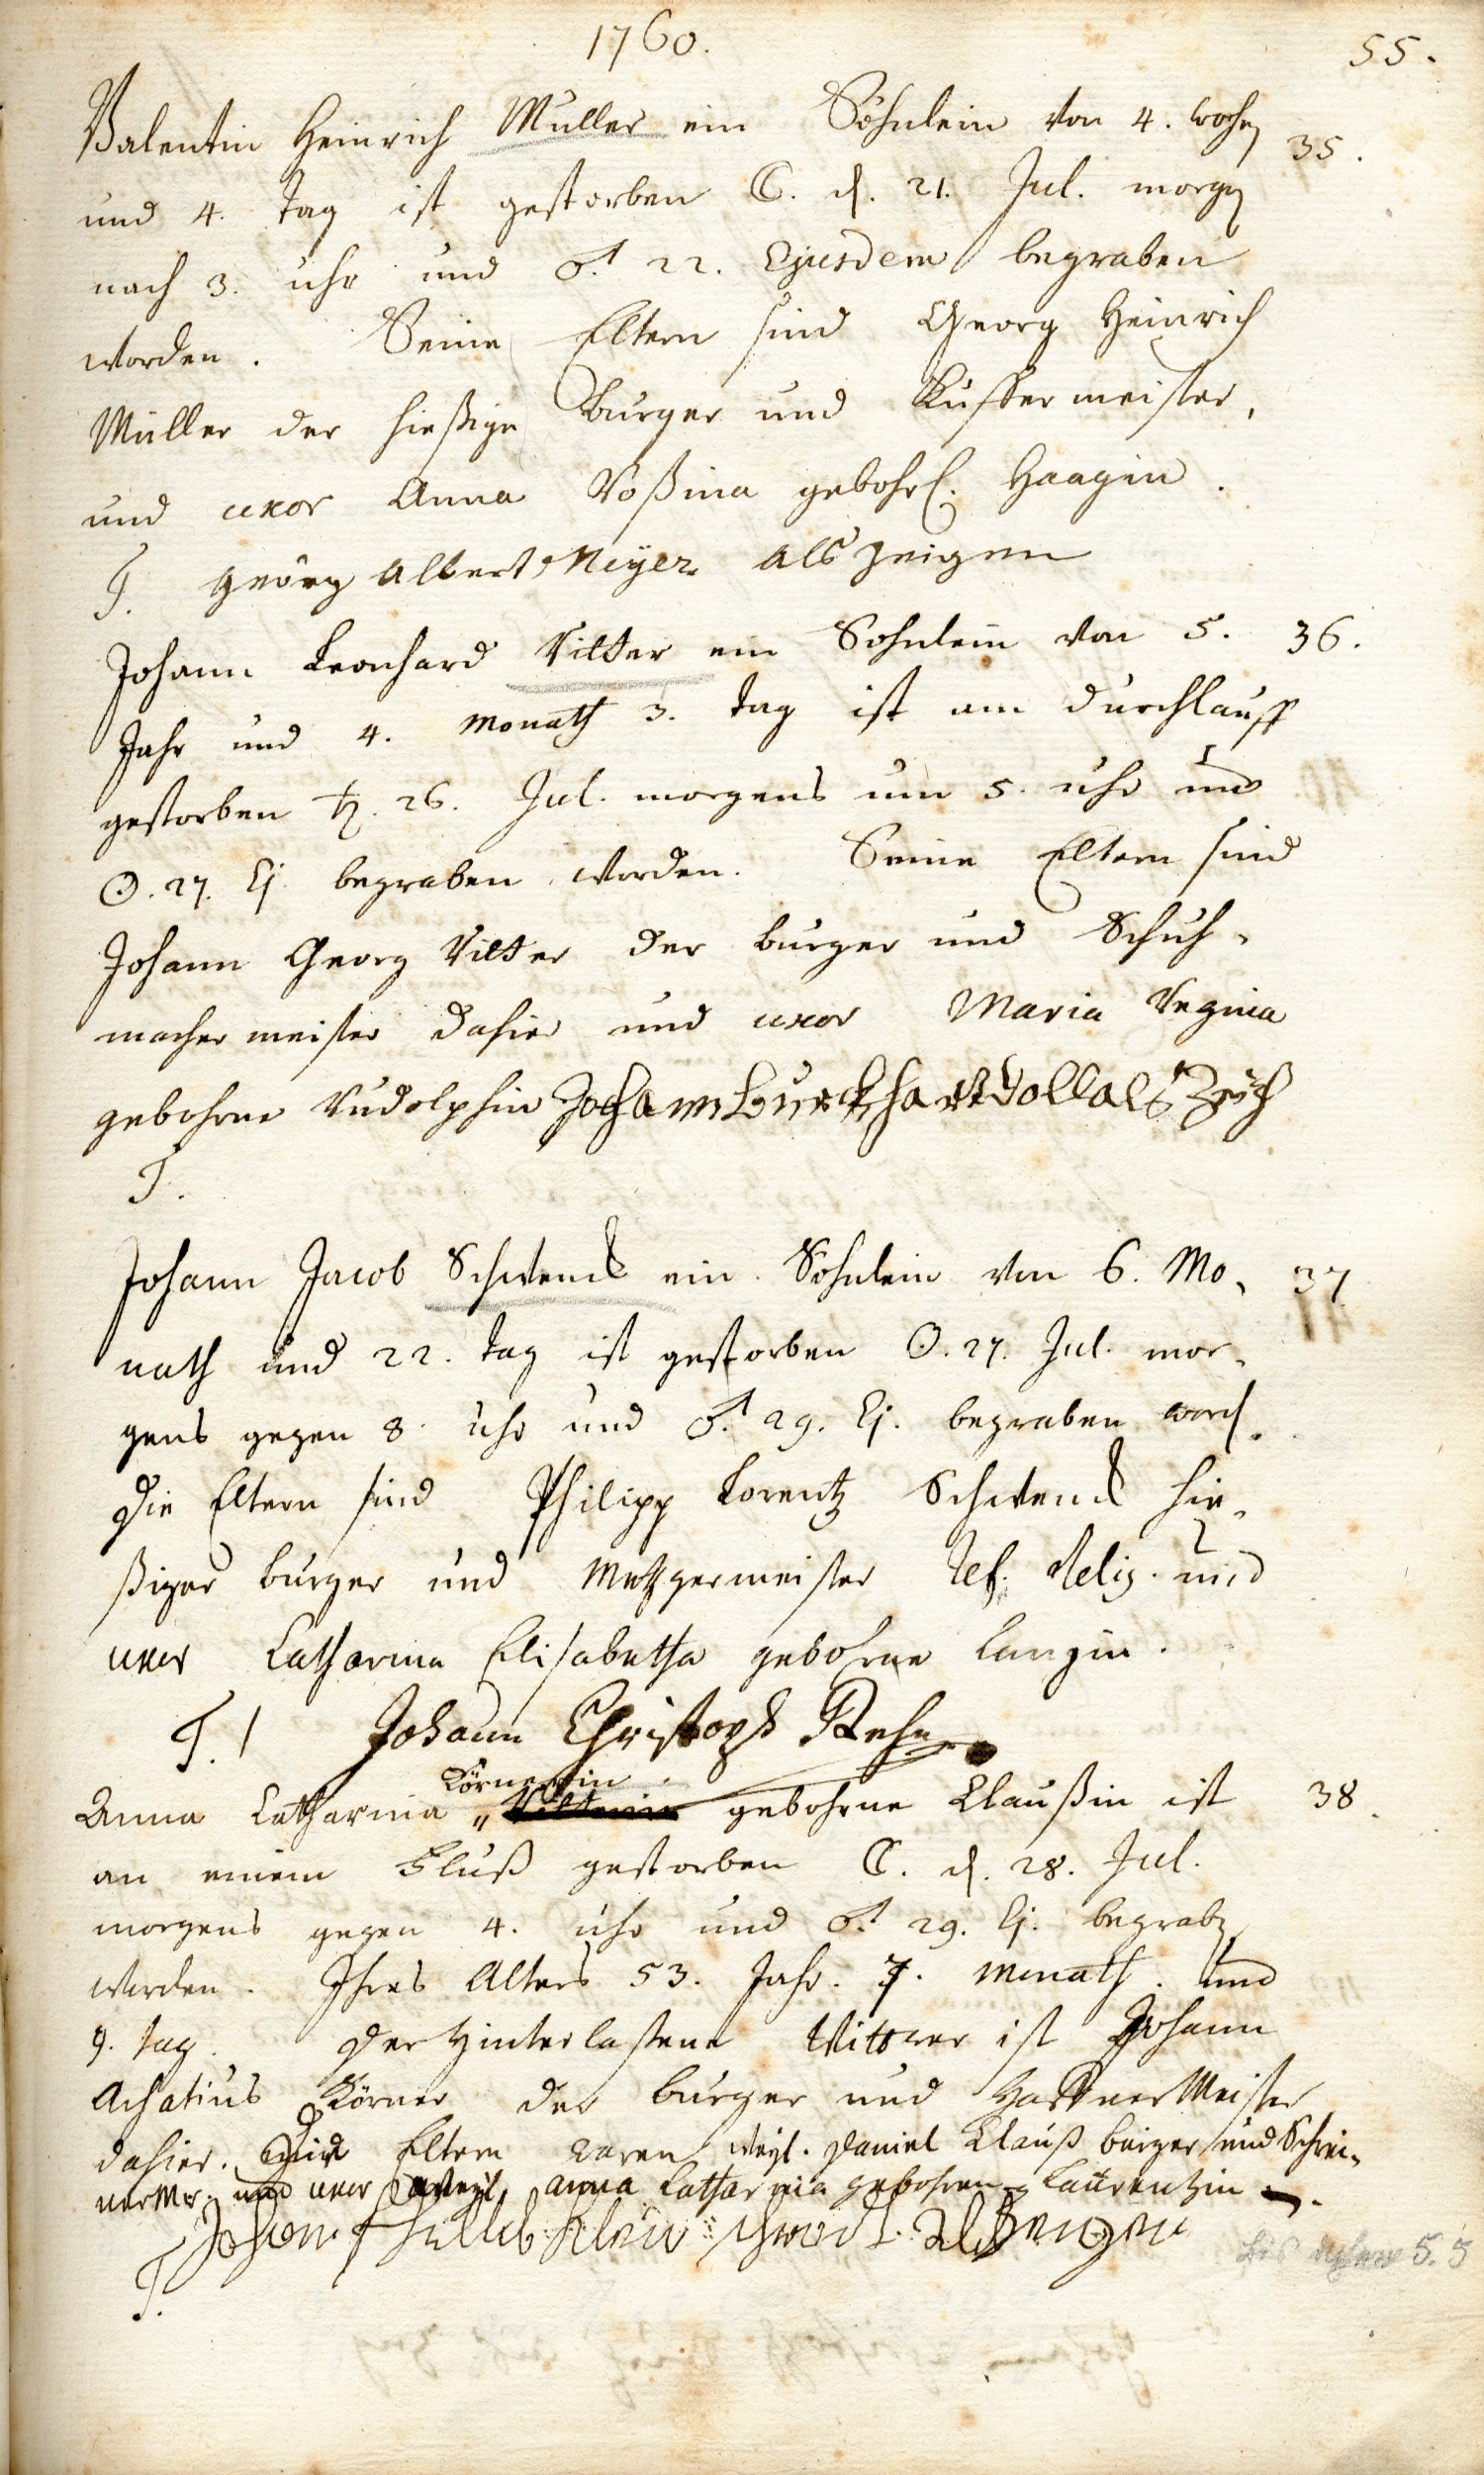 1760.
55.
Valentin Heinrich Müller ein Söhnlein von 4. woche 35.
und 4. Tag ist gestorben ☾. d. 21. Jul. morgen
nach 3. uhr und ♂. 22. Ejusdem begraben
worden. Seine Eltern sind Georg Heinrich
Müller der hießige Burger und Küffermeister,
und uxor Anna Roßina gebohrl. Haagin.
T. Georg Albert Meÿer als zeigen
Johann Leonhard Vilter ein Söhnlein von 5. 36.
Jahr und 4. Monath 3. Tag ist am durchlauff
gestorben ♄. 26. Jul. morgens um 5. uhr und
☉. 27. Ej. begraben worden. Seine Eltern sind
Johann Georg Vilter der burger und Schuh-
macher meister dahier und uxor Maria Regina
gebohrne Rudolphin Johann Burckhart Voll als Zeüch
T.
Johann Jacob Schwend ein Söhnlein von 6. Mo- 37
nath und 22. Tag ist gestorben ☉. 27. Jul. mor-
gens gegen 8. uhr und ♂. 29. Ej. begraben word.
Die Eltern sind Philipp Lorentz Schwend hie-
ßiger burger und Metzgermeister Ref. Relig. und
uxor Catharina Elisabetha gebohrne Langin.
T. ! Johann Christoph Rehn
Körnerin
Anna Catharina " gebohrne Claußin ist 38.
an einem Fluß gestorben ☾. d. 28. Jul.
morgens gegen 4. uhr und ♂. 29. Ej. begraben
worden. Ihres Alters 53. Jahr. 7. Monath. und
9. Tag. Der Hinterlaßene Wittwer ist Johann
Achatius Körner der burger und Haffner Meister
dahier. Die Eltern waren weyl. Daniel Clauß burger und Schrei-
ner Mr. und uxor weyl. Anna Catharina gebohrene Laurentzin.
Johann als Zeugen
T.
5. 5